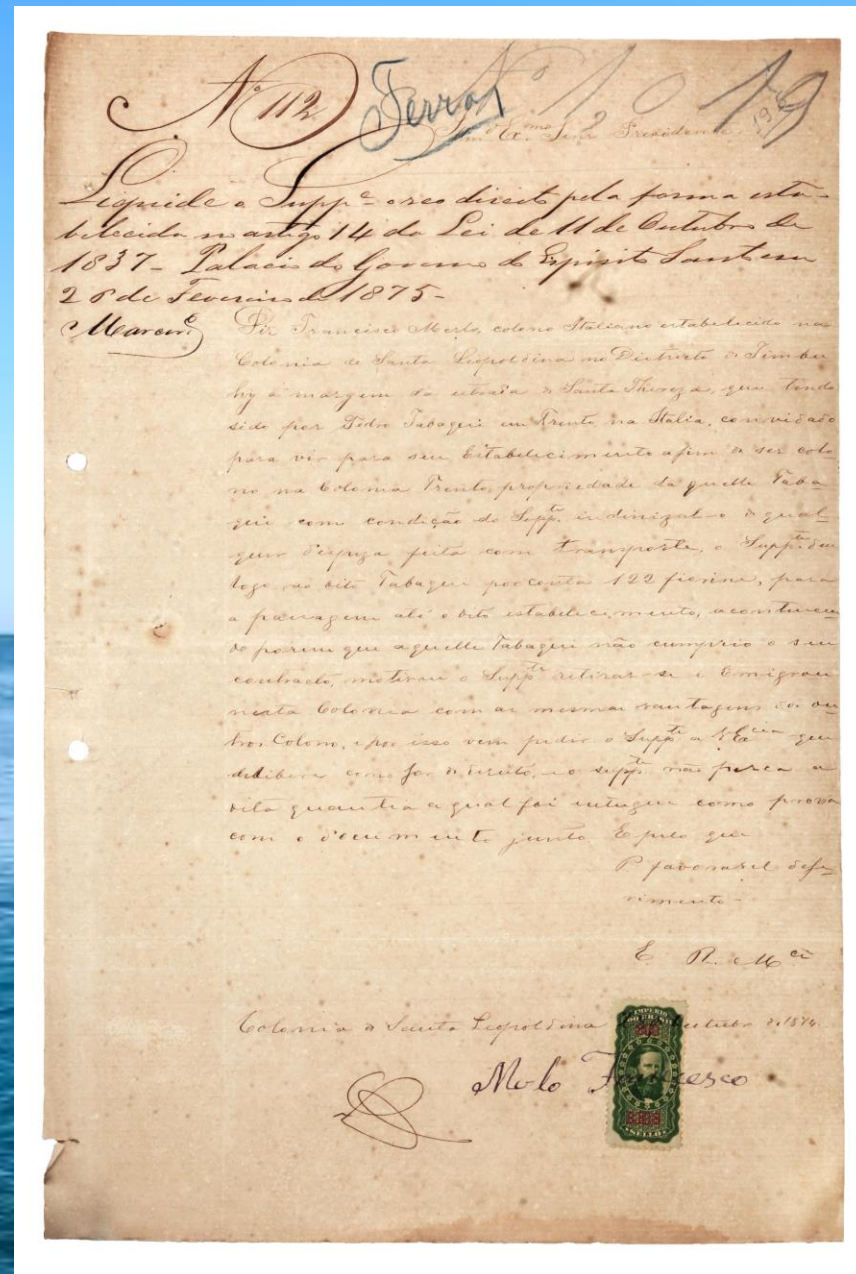 Nº 112 Terras Nº 1019
Illmo Exmo Senr Presidente
Liquide o Suppe o seo direito pela forma esta-
belecida no artigo 14 da Lei de 11 de Outubro de
1837 - Palacio do Governo do Espirito Santo em
26 de Fevereiro de 1875 -
Diz Francisco Merlo, colono Italiano estabelecido na
Colonia de Santa Leopoldina no Districto de Timbu
hy á margem da estrada de Santa Thereza, que tendo
sido por Pedro Tabageri em Trento na Italia, convidado
para vir para seu Estabelecimento afim de ser colo
no na Colonia Trento, propriedade da quelle Taba
geri com condição do Suppte indinizal-o de qual
quer despeza feita com transporte, o Suppte deu
logo ao dito Tabageri por conta 122 fiorini, para
a passagem até o dito estabelecimento, acontecen
do porem que aquelle Tabageri não cumprio o seu
contracto, motivou o Suppte retirar-se e Emigrou
nesta Colonia com as mesmas vantagens dos ou
tros Colonos, e por isso vem pedir o Suppte a V. Excia que
delibere como for de direito, e o suppte não perca a
dita quantia a qual foi entregue como prova
com o documento junto. E pelo que
P. favoravel defe
rimento
E. R. Mce
Colonia de Santa Leopoldina Outubro de 1874
Merlo Francesco
IMPERIO DO BRASIL
200
SELLO